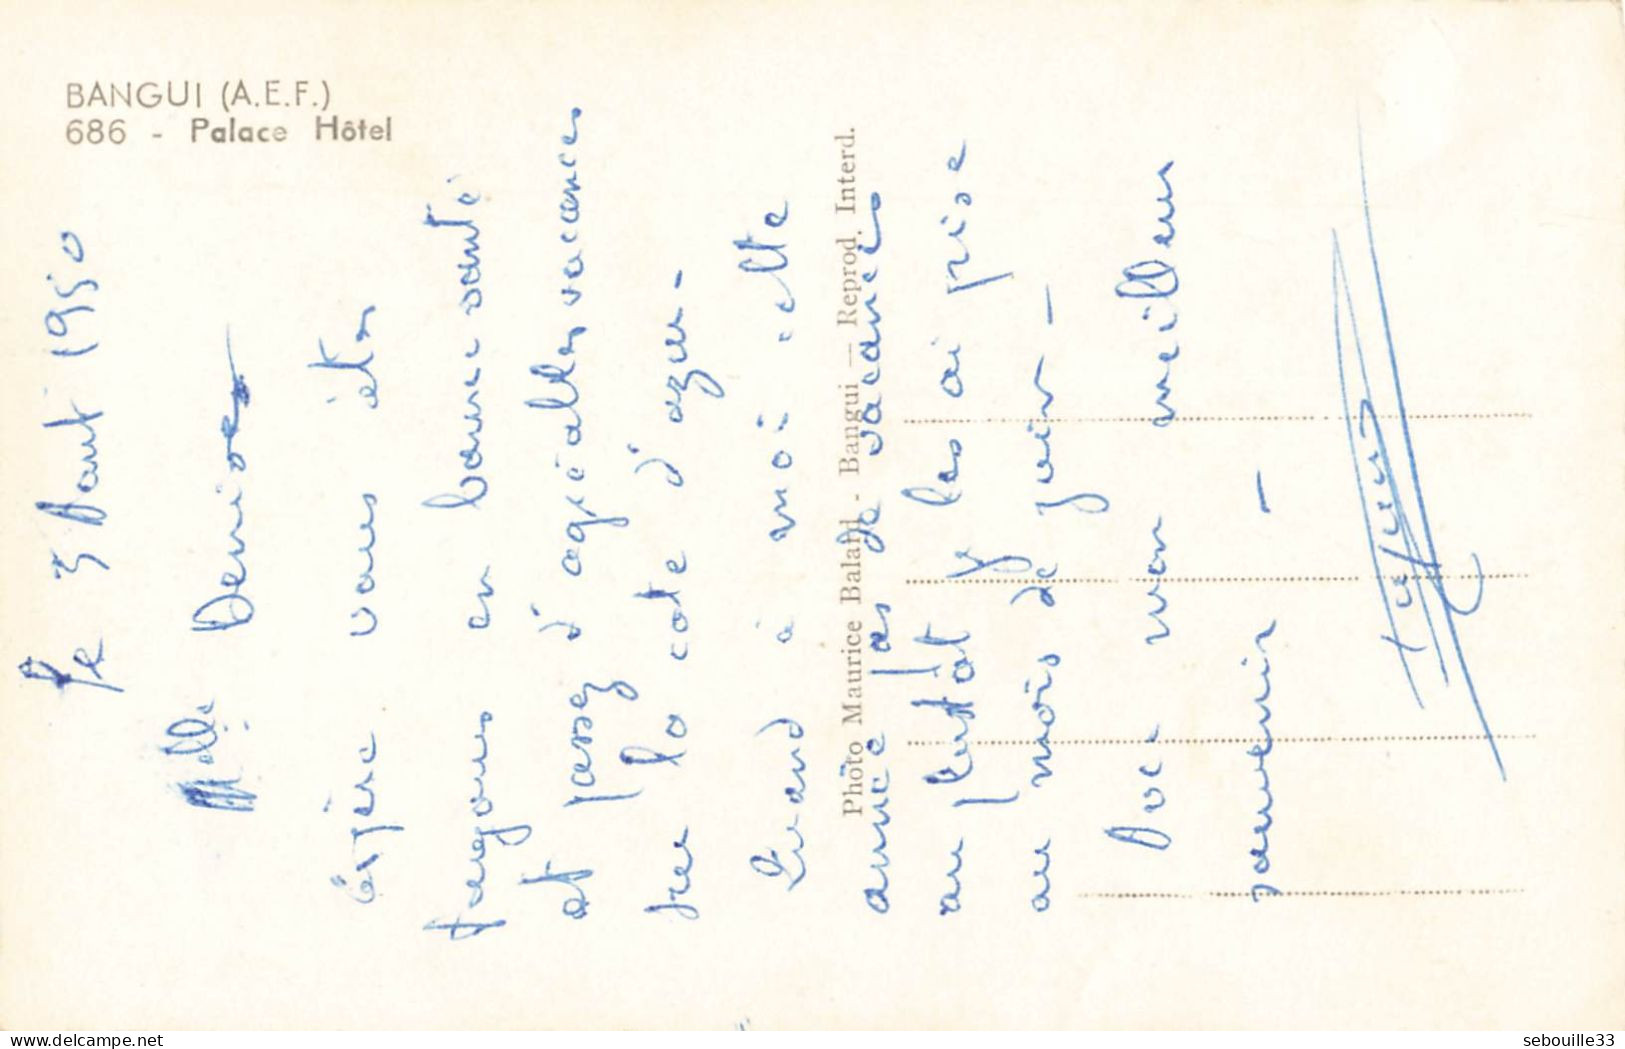 BANGUI (A.E.F.)
686 - Palace Hôtel
Le 3 Aout 1950
Melle Denise
espère vous êtes
toujours en bonne santé
et passez d'agréables vacances
sur la cote d'azur -
Quand à moi cette
année pas de vacances
ou plutôt je les ai prise
au mois de juin -
Avec mon meilleur
souvenir -
Photo Maurice Balard - Bangui — Reprod. Interd.
sebouille33